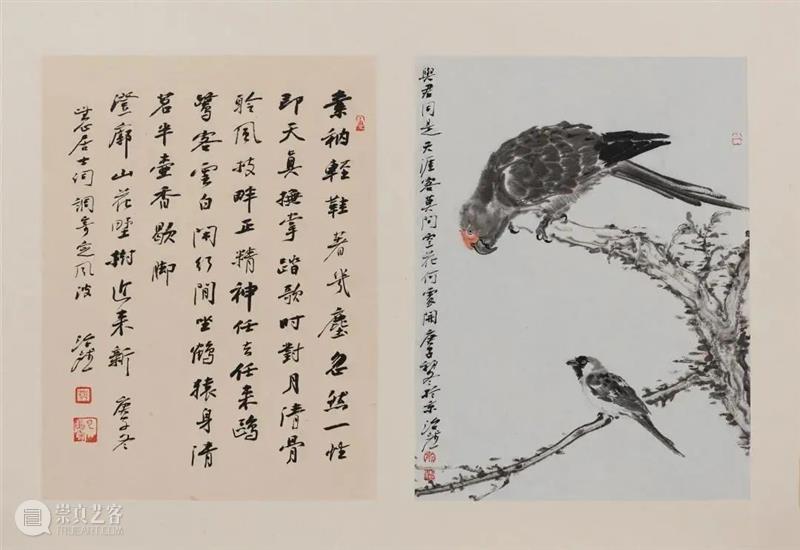 素衲輕鞋著幾塵忽然一性
即天真撫掌踏歌時對月清骨
聆風枝畔正精神任去任來鷗
鷺客雲白閑行閒坐鶴猿身清
茗半壺香歇脚
澄廓山花野樹近来新
庚子冬
居士词調寄定風波
與君同是天涯客莫問空花何處開庚子初冬於京
崇真艺客
TRUEART.COM